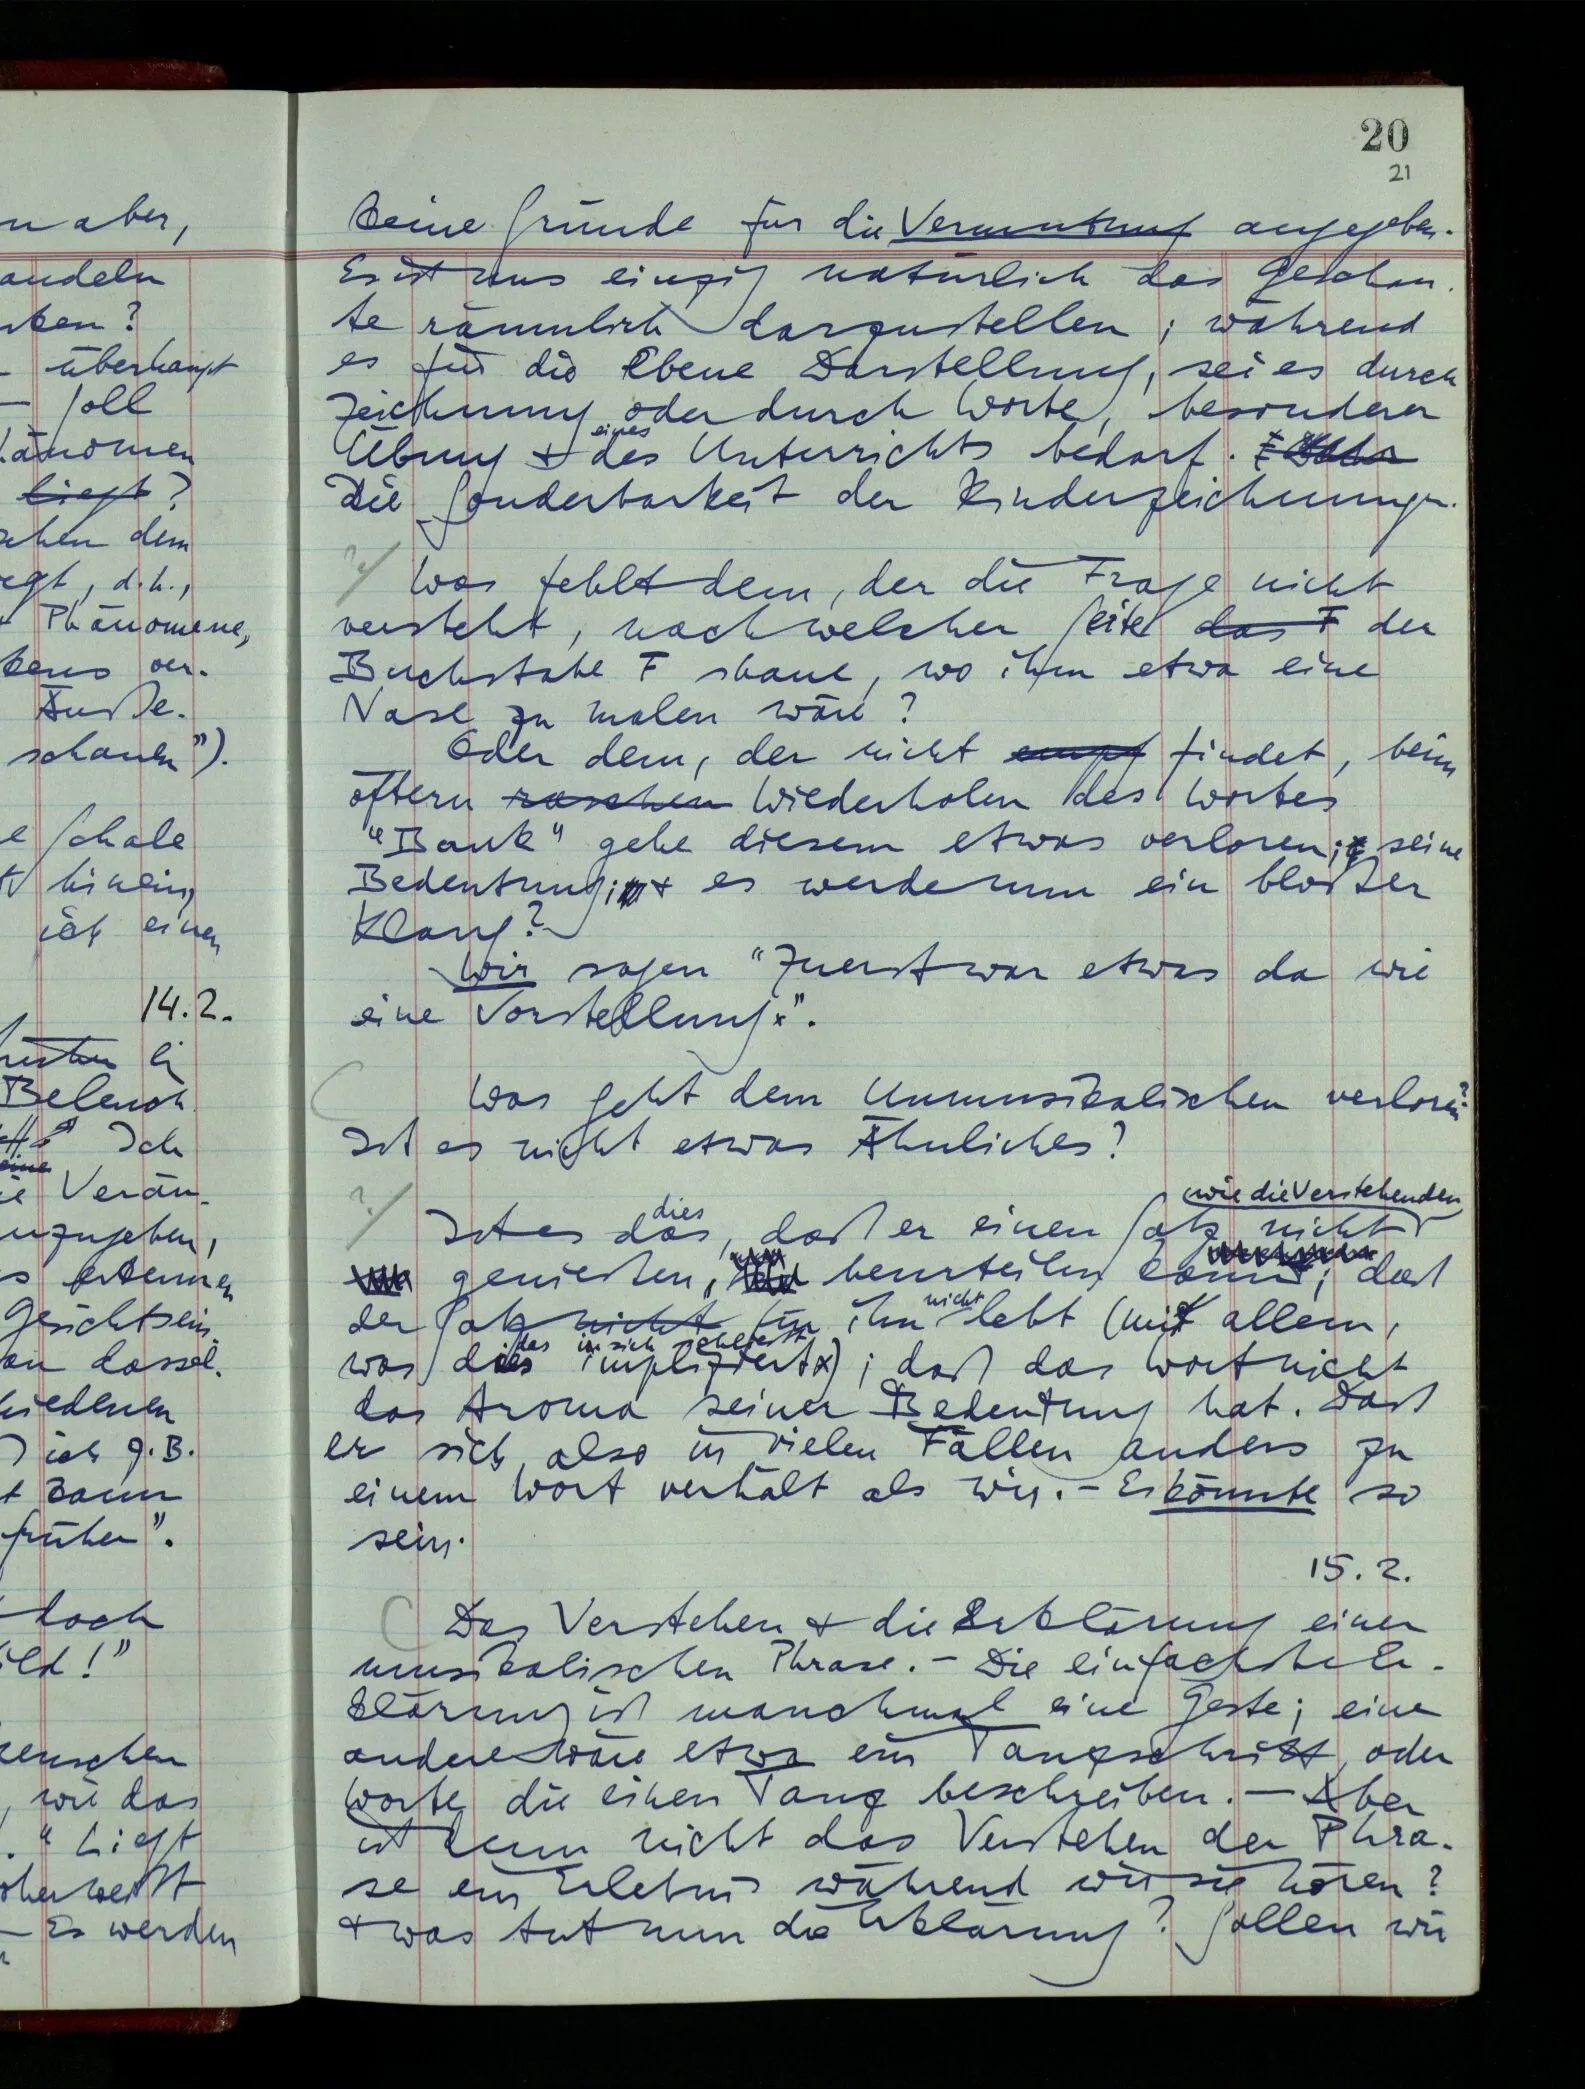 n aber,
andeln
ken?
– überhaupt
– soll
änomen
liegt?
chen dem
egt, d.h.,
Phänomene,
kens ver-
Äuße-
schauen").
e Schale
hinein,
ich einen
14.2.
Beleuch
Ich
eine
ie Verän-
nzugeben,
s erkennen
Gesichtsein
an dassel-
hiedenen
ich z.B.
t kann
früher".
doch
ild!"
enschen
, wie das
." Liegt
oher weißt
– Es werden
20
21
keine Gründe für die Vermutung angegeben.
Es ist uns einzig natürlich das Geschau-
te räumlich darzustellen; während
es für die ebene Darstellung, sei es durch
Zeichnung oder durch Worte, besonderer
eines
Übung & des Unterrichts bedarf.
Die Sonderbarkeit der Kinderzeichnungen.
?/ Was fehlt dem, der die Frage nicht
versteht, nach welcher Seite das F der
Buchstabe F schaue, wo ihm etwa eine
Nase zu malen wäre?
Oder dem, der nicht empf findet, beim
öftern raschen Wiederholen des Wortes
"Bank" gehe diesem etwas verloren; seine
Bedeutung; & es werde nun ein bloßer
Klang?
Wir sagen "Zuerst war etwas da wie
eine Vorstellung".
C Was geht dem Unmusikalischen verloren?
Ist es nicht etwas Ähnliches?
wie die Verstehenden
dies
?/ Ist es das, daß er einen Satz nicht
genießen, beurteilen kann; daß
nicht
der Satz nicht in ihm lebt (mit allem,
das in sich schließt
was dies impliziert); daß das Wort nicht
das Aroma seiner Bedeutung hat. Daß
er sich also in vielen Fällen anders zu
einem Wort verhält als wir. – Es könnte so
sein.
15.2.
C Das Verstehen & die Erklärung einer
musikalischen Phrase. – Die einfachste Er-
klärung ist manchmal eine Geste; eine
andere wäre etwa ein Tanzschritt, oder
Worte die einen Tanz beschreiben. – Aber
ist denn nicht das Verstehen der Phra-
se ein Erlebnis während wir sie hören?
& was tut nun die Erklärung? Sollen wir